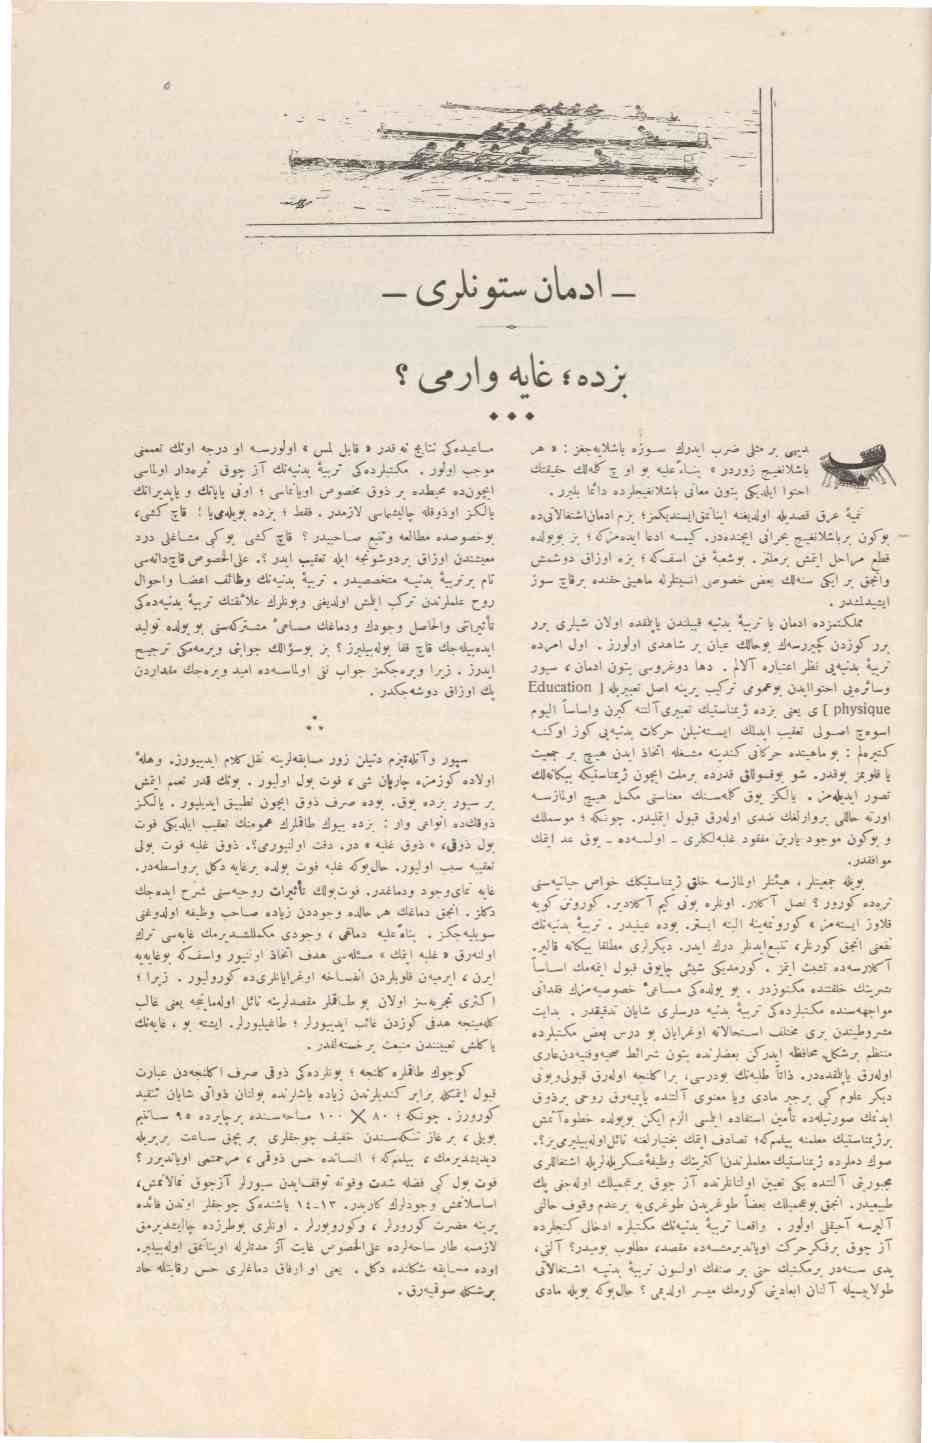 ٥
– ادمان ستونلری –
بزده؛ غایه وارمی ؟
بدیهی بر مثلی ضرب ایدرك سوزه باشلایه‌جغز : « هر
باشلانغیج زوردر » بناءً علیه بو اوچ كله‌نك حقیقتك
احتوا ایلدیكی بتون معانی باشلانغیجلرده دائما بلیرر .
تمیهٔ عرق قصدیله اولدیغنه اینانمق‌ایسته‌دیكمز؛ بزم ادمان‌اشتغالاتی‌ده
بوكون برباشلانغیج بحرانی ایچنده‌در. كیمسه ادعا ایده‌مزكه؛ بز بویولده
قطع مراحل ایتمش برملتز . بوشعبهٔ فن اسفكه؛ بزه اوزاق دوشمش
وانجق بر ایكی سنه‌لك بعض خصوصی انسیتلرله ماهیتی‌حقنده برقاچ سوز
ایشیدلمشدر .
مملكتمزده ادمان یا تربیهٔ بدنیه قبیلندن یاپیلقده اولان شیلری برر
برر كوزدن كچیررسه‌ك بوحالك عیان بر شاهدی اولورز . اول امرده
تربیهٔ بدنیه‌یی نظر اعتباره آلالم . دها دوغروسی بتون ادمان، سپور
وسائره‌یی احتواایدن بوعمومی تركیب یرینه اصل تعبیریله [ Education
physique ] ی یعنی بزده ژیمناستیك تعبیری‌آلتنه كیرن واساساً الیوم
اسوه‌ج اصولی تعقیب ایدیلك ایسته‌نیلن حركات بدنیه‌یی كوز اوكنه
كتیره‌لم : بو ماهیتده حركاتی كندینه مشغله اتخاذ ایدن هیچ بر جمعیت
یا قلوبمز یوقدر. شو یوقسوللق قدرده برملت ایچون ژیمناستیكه بیكانه‌لك
تصور ایدیله‌مز . یالكز یوق كله‌سنك معناسنی مكمل هیچ اولمازسه
اورته حاللی بروارلغك ضدی اوله‌رق قبول ایتملیدر. چونكه ؛ موسملك
و بوكون موجود یارین مفقود غلبه‌لكلری ـ اولسه‌ده ـ یوق عد ایتمك
موافقدر.
بویله جمعیتلر ، هیئتلر اولمازسه خلق ژیمناستیكك خواص حیاتیه‌سنی
نره‌ده كورور ؟ نصل آكلار. اونلره بونی كیم آكلادیر. كورونن كویه
قلاوز ایسته‌مز » كورونمه‌ینه البته ایستر. بوده عینیدر . تربیهٔ بدنیه‌نك
نفعنی انجق كورنلر، تتبع‌ایدنلر درك ایدر. دیكرلری مطلقا بیكانه قالیر.
آكلارسه‌ده تشبث ایتمز . كورمدیكی شیئی چابوق قبول ایتمه‌مك اساساً
بشریتك خلقتنده مكنوزدر . بو یولده‌كی مساعیٔ خصوصیه‌مزك فقدانی
مواجهه‌سنده مكتبلرده‌كی تربیهٔ بدنیه درسلری شایان تدقیقدر . بدایت
مشروطیتدن بری مختلف استحالاته اوغرایان بو درس بعض مكتبلرده
منتظم برشكل محافظه ایدركن بعضلرنده بتون شرائط صحیه‌وفنیه‌دن‌عاری
اوله‌رق یاپیلقده‌در. ذاتاً طلبه‌نك بودرسی، براكلنجه اوله‌رق قبولی‌وبونی
دیكر علوم كبی برجبر مادی ویا معنوی آلتنده یاپمیه‌رق روحی برذوق
ایدنمك صورتیله‌ده تأمین استفاده ایتلسی الزم ایكن بویولده خطوه‌آتمش
برژیمناستیك معلمنه بیلمم‌كه؛ تصادف ایتمك بختیارلغنه نائل‌اوله‌بیلیری‌یز؟.
صوك دملرده ژیمناستیك معلملرندن‌اكثریتك وظیفهٔ‌عسكریه‌لریله اشتغاللری
مجبوریتی آلتنده یكی تعیین اولنانلرنده آز چوق برعجمیلك اوله‌جغی پك
طبیعیدر. انجق بوعجمیلك بعضاً طوغریدن طوغری‌یه برعدم وقوف حالنی
آلیرسه آجیقلی اولور . واقعا تربیهٔ بدنیه‌نك مكتبلره ادخالی كنجلرده
آز چوق برفكرحركت اویاندیرمشسه‌ده مقصد، مطلوب بومیدر؟ آلتی،
یدی سنه‌در برمكتبك حتی بر صنفك اولسون تربیهٔ بدنیه اشتغالاتی
طولاییسیله آلنان ابعادینی كورمك میسر اولدیمی ؟ حال‌بوكه بویله مادی
مساعیده‌كی نتایج نه قدر « قابل لمس » اولورسه او درجه اونك تعممنی
موجب اولور . مكتبلرده‌كی تربیهٔ بدنیه‌نك آز چوق ثمره‌دار اولماسی
ایچون‌ده محیطده بر ذوق مخصوص اویانماسی ؛ اونی یاپانك و یاپدیرانك
یالكز اوذوقله چالیشماسی لازمدر. فقط ؛ بزده بویله‌می‌یا ! قاچ كشی،
بوخصوصده مطالعه وتتبع صاحبیدر ؟ قاچ كشی بوكبی مشاغلی درد
معیشتدن اوزاق بردوشونجه ایله تعقیب ایدر ؟. علی‌الخصوص قاچ‌دانه‌سی
تام برتربیهٔ بدنیه متخصصیدر . تربیهٔ بدنیه‌نك وظائف اعضا واحوال
روح علملرندن تركب ایتمش اولدیغنی وبونلرك علائقنك تربیهٔ بدنیه‌ده‌كی
تأثیراتنی والحاصل وجودك ودماغك مساعیٔ مشتركه‌سنی بو یولده تولید
ایده‌بیله‌جك قاچ قفا بوله‌بیلیرز ؟ بز بوسؤالك جوابنی ویرمه‌مكی ترجیح
ایدرز . زیرا ویره‌جكمز جواب نفی اولماسه‌ده امید ویره‌جك مقداردن
پك اوزاق دوشه‌جكدر .
سپور وآتله‌تیزم دنیلن زور مسابقه‌لرینه نقل كلام ایدییورز. وهلهٔ
اولاده كوزمزه چارپان شی ، فوت بول اولیور . بونك قدر تعمم ایتمش
بر سپور بزده یوق. بوده صرف ذوق ایچون تطبیق ایدیلیور . یالكز
ذوقك‌ده انواعی وار : بزده بیوك طاقملرك عمومنك تعقیب ایلدیكی فوت
بول ذوقی، « ذوق غلبه » در. دقت اولنیورمی؟. ذوق غلبه فوت بولی
تعقیبه سبب اولیور. حال‌بوكه غلبه فوت بولده برغایه دكل برواسطه‌در.
غایه نمای‌وجود ودماغدر. فوت‌بولك تأثیرات روحیه‌سنی شرح ایده‌جك
دكلز . انجق دماغك هر حالده وجوددن زیاده صاحب وظیفه اولدوغنی
سویلیه‌جكز . بناءً علیه دماغی ، وجودی مكمللشدیرمك غایه‌سی ترك
اولنه‌رق « غلبه ایتمك » مسئله‌سی هدف اتخاذ اولنیور واسف‌كه بوغایه‌یه
ایرن ، ایرمیه‌ن قلوبلردن انفساخه اوغرایانلری‌ده كورولیور. زیرا ؛
اكثری تجربه‌سز اولان بو طاقملر مقصدلرینه نائل اوله‌ماینجه یعنی غالب
كله‌مینجه هدفی كوزدن غائب ایدییورلر ؛ طاغیلیورلر. ایشته بو ، غایه‌نك
یاكلش تعییندن منبعث برخسته‌لقدر.
كوچوك طاقملره كلنجه ؛ بونلرده‌كی ذوقی صرف اكلنجه‌دن عبارت
قبول ایتمكله برابر كندیلرندن زیاده باشلرنده بولنان ذواتی شایان تنقید
كورورز. چونكه ؛ ٨٠ × ١٠٠ ساحه‌سنده برچایرده ٩٥ سانتیم
بویلی ، بر غاز تنكه‌سندن خفیف چوجقلری بر بچق ساعت بربریله
دیدیشدیرمك ، بیلمم‌كه ؛ انسانده حس ذوقمی ، مرحمتمی اویاندیرر ؟
فوت بول كبی فضله شدت وقوته توقف‌ایدن سپورلر آزچوق نمالانمش،
اساسلانمش وجودلرك كاریدر. ١٣-١٤ یاشنده‌كی چوجقلر اوندن فائده
یرینه مضرت كورورلر ، وكورویورلر . اونلری بوطرزده چالیشدیرمق
لازمسه طار ساحه‌لرده علی‌الخصوص غایت آز مدتلرله اوینانمق اوله‌بیلیر.
اوده مسابقه شكلنده دكل . یعنی او ارفاق دماغلری حس رقابتله حاد
برشكله صوقمیه‌رق .